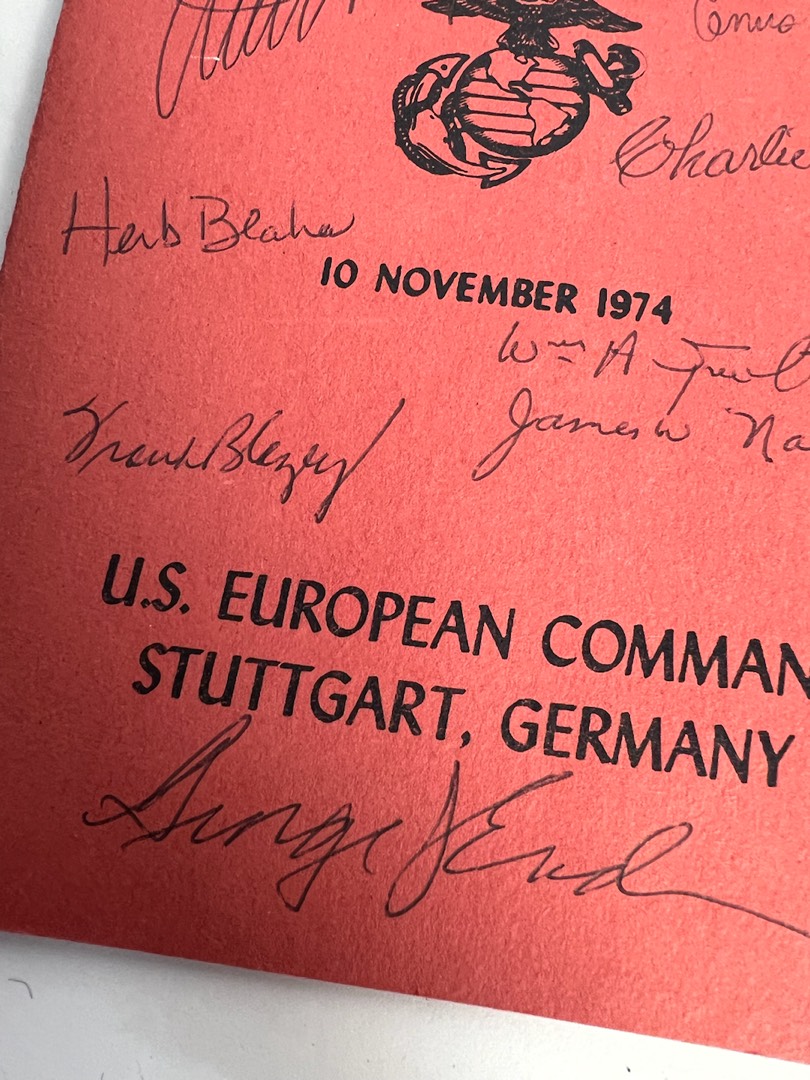 Charlie
Herb Blaha
10 NOVEMBER 1974
Wm A
James W Na
Frank Blazey
U.S. EUROPEAN COMMAN
STUTTGART, GERMANY
George J Eud